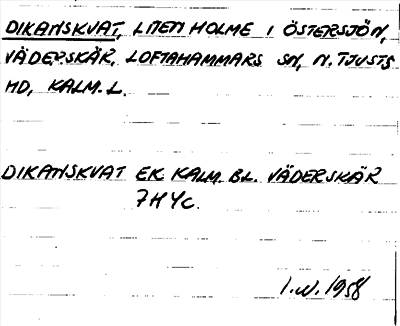 DIKANSKVAT, LITEN HOLME I ÖSTERSJÖN,
VÄDERSKÄR, LOFTAHAMMARS SN, N. TJUSTS
HD, KALM. L.
DIKANSKVAT EK KALM. BL. VÄDERSKÄR
7H4c.
I.W. 1958